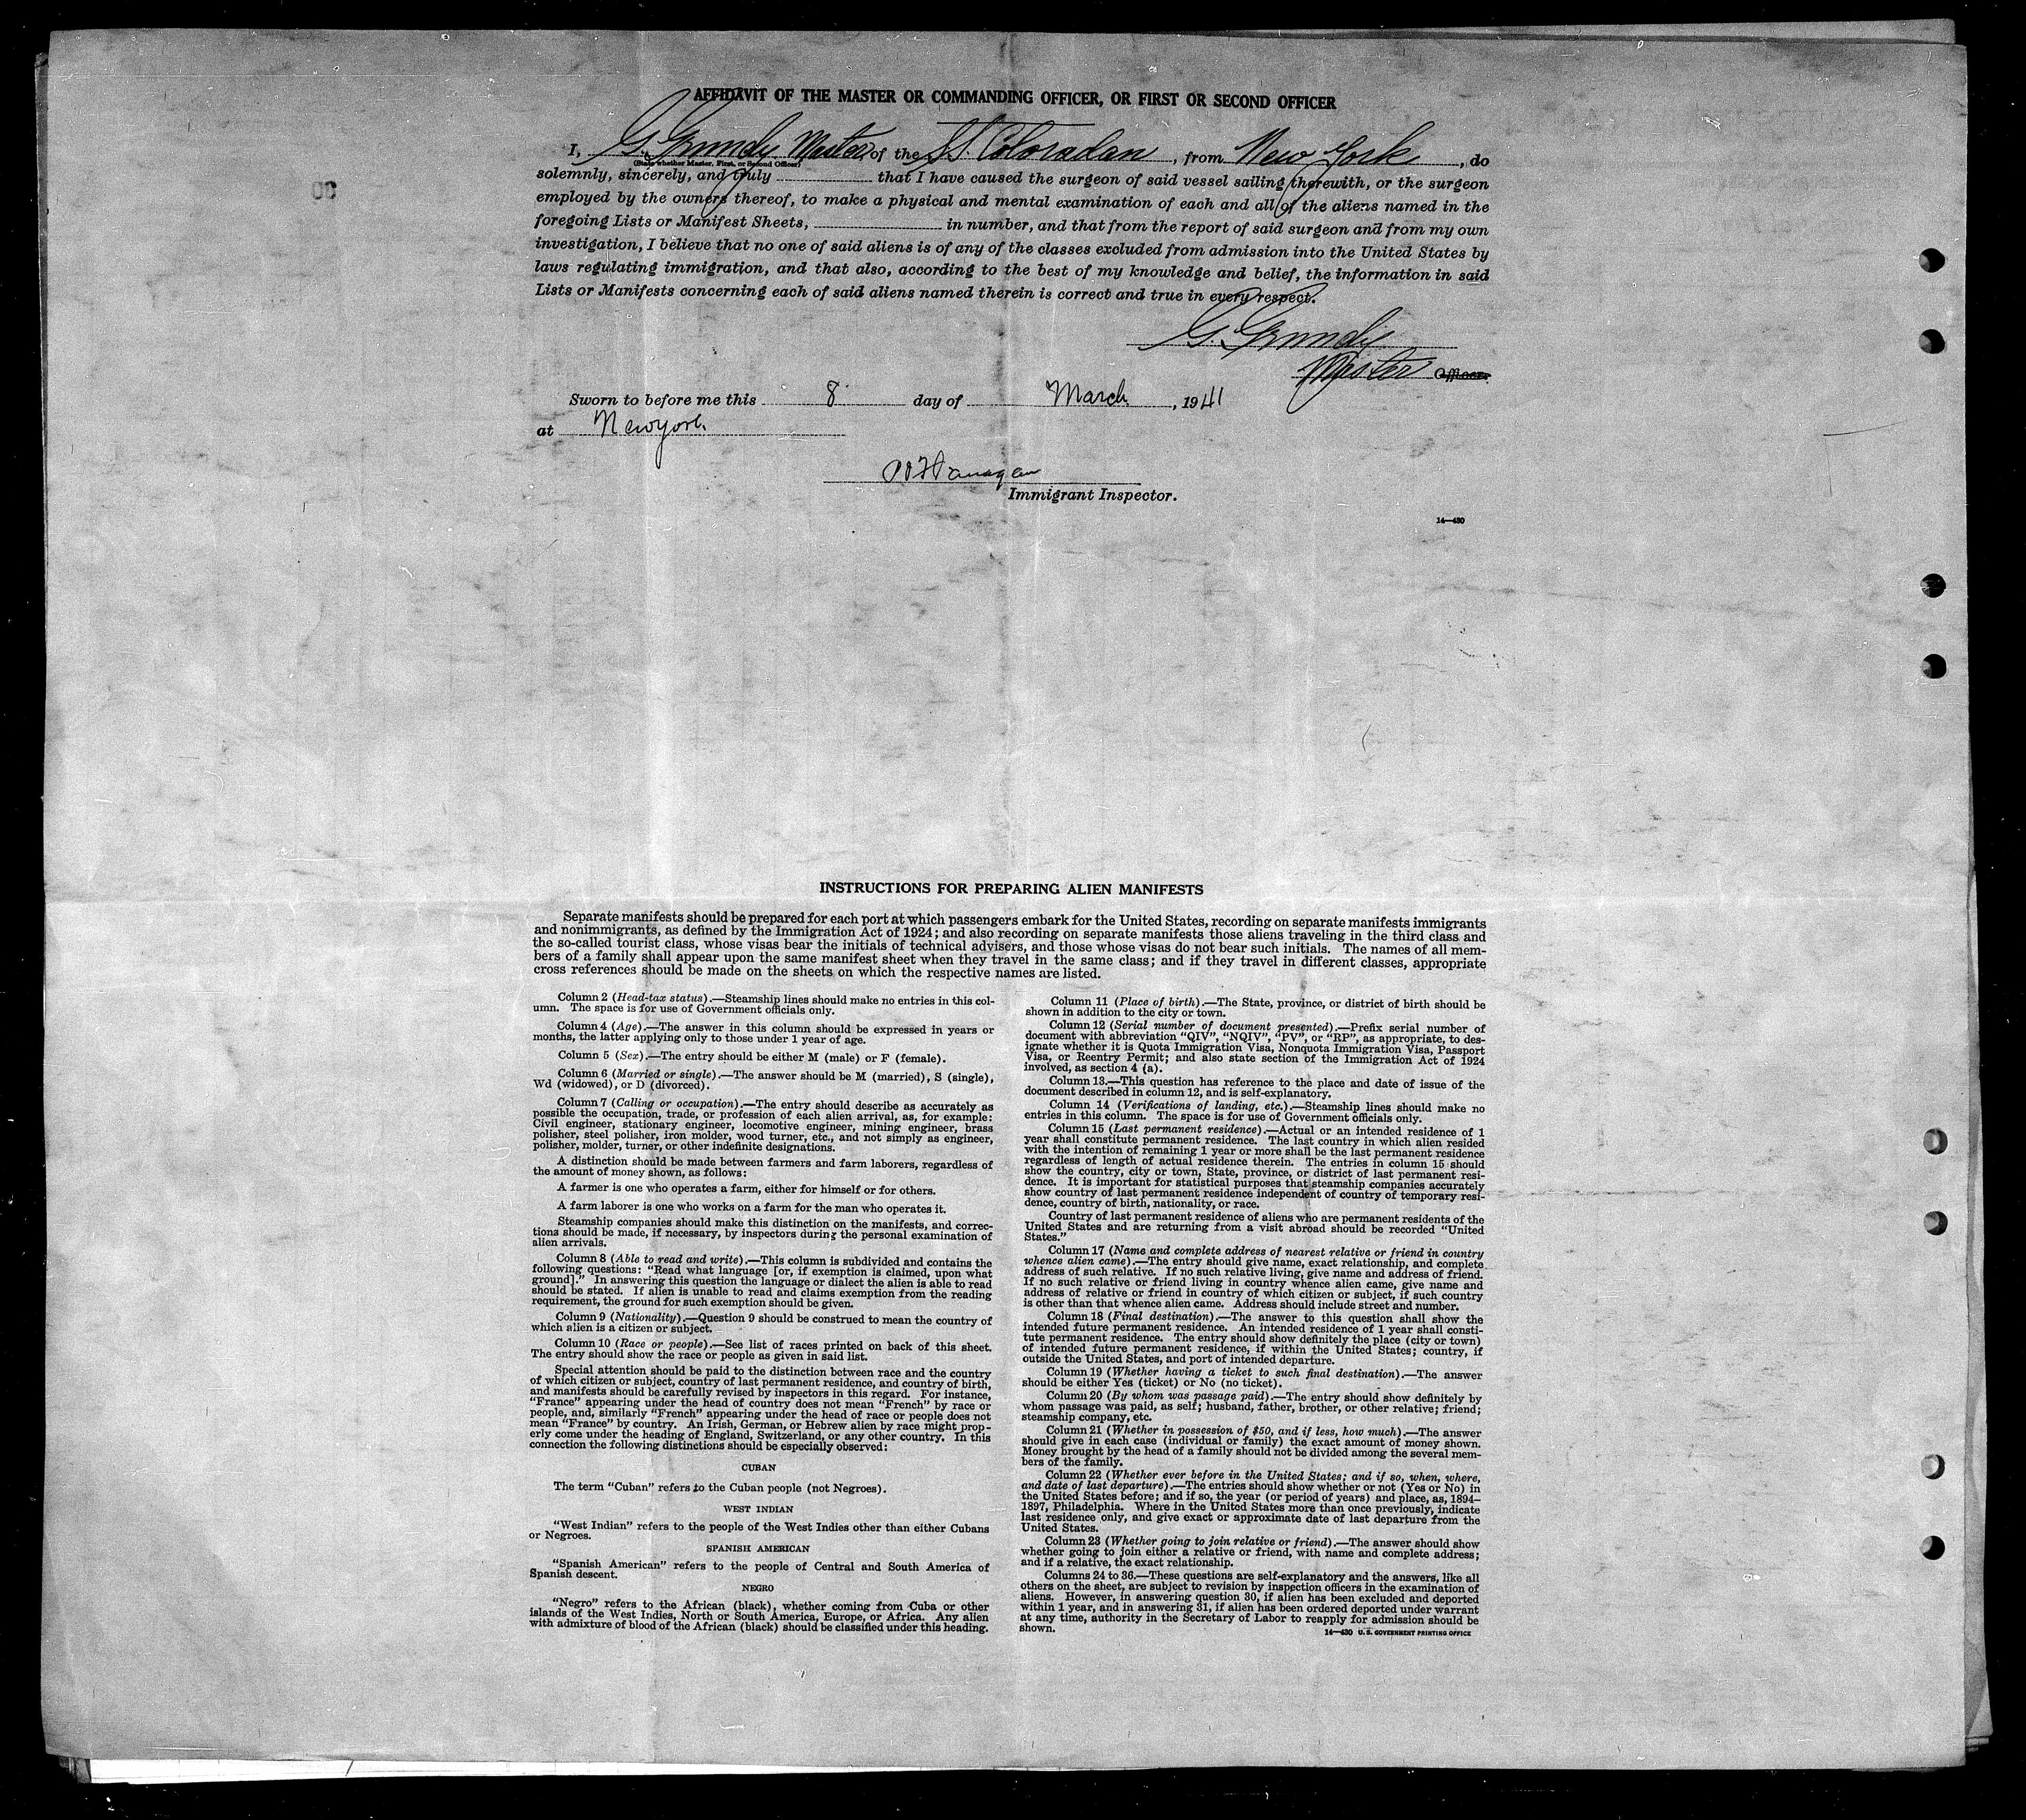 AFFIDAVIT OF THE MASTER OR COMMANDING OFFICER, OR FIRST OR SECOND OFFICER
I, G. Grundy Master, of the SS. Coloradan, from New York, do
(State whether Master, First, or Second Officer)
solemnly, sincerely, and truly that I have caused the surgeon of said vessel sailing therewith, or the surgeon
employed by the owners thereof, to make a physical and mental examination of each and all of the aliens named in the
foregoing Lists or Manifest Sheets, in number, and that from the report of said surgeon and from my own
investigation, I believe that no one of said aliens is of any of the classes excluded from admission into the United States by
laws regulating immigration, and that also, according to the best of my knowledge and belief, the information in said
Lists or Manifests concerning each of said aliens named therein is correct and true in every respect.
G. Grundy
Master Officer.
Sworn to before me this 8 day of March, 1941
at New York.
Immigrant Inspector.
14—430
INSTRUCTIONS FOR PREPARING ALIEN MANIFESTS
Separate manifests should be prepared for each port at which passengers embark for the United States, recording on separate manifests immigrants
and nonimmigrants, as defined by the Immigration Act of 1924; and also recording on separate manifests those aliens traveling in the third class and
the so-called tourist class, whose visas bear the initials of technical advisers, and those whose visas do not bear such initials. The names of all mem-
bers of a family shall appear upon the same manifest sheet when they travel in the same class; and if they travel in different classes, appropriate
cross references should be made on the sheets on which the respective names are listed.
Column 2 (Head-tax status).—Steamship lines should make no entries in this col-
umn. The space is for use of Government officials only.
Column 4 (Age).—The answer in this column should be expressed in years or
months, the latter applying only to those under 1 year of age.
Column 5 (Sex).—The entry should be either M (male) or F (female).
Column 6 (Married or single).—The answer should be M (married), S (single),
Wd (widowed), or D (divorced).
Column 7 (Calling or occupation).—The entry should describe as accurately as
possible the occupation, trade, or profession of each alien arrival, as, for example:
Civil engineer, stationary engineer, locomotive engineer, mining engineer, brass
polisher, steel polisher, iron molder, wood turner, etc., and not simply as engineer,
polisher, molder, turner, or other indefinite designations.
A distinction should be made between farmers and farm laborers, regardless of
the amount of money shown, as follows:
A farmer is one who operates a farm, either for himself or for others.
A farm laborer is one who works on a farm for the man who operates it.
Steamship companies should make this distinction on the manifests, and correc-
tions should be made, if necessary, by inspectors during the personal examination of
alien arrivals.
Column 8 (Able to read and write).—This column is subdivided and contains the
following questions: "Read what language [or, if exemption is claimed, upon what
ground]." In answering this question the language or dialect the alien is able to read
should be stated. If alien is unable to read and claims exemption from the reading
requirement, the ground for such exemption should be given.
Column 9 (Nationality).—Question 9 should be construed to mean the country of
which alien is a citizen or subject.
Column 10 (Race or people).—See list of races printed on back of this sheet.
The entry should show the race or people as given in said list.
Special attention should be paid to the distinction between race and the country
of which citizen or subject, country of last permanent residence, and country of birth,
and manifests should be carefully revised by inspectors in this regard. For instance,
"France" appearing under the head of country does not mean "French" by race or
people, and, similarly "French" appearing under the head of race or people does not
mean "France" by country. An Irish, German, or Hebrew alien by race might prop-
erly come under the heading of England, Switzerland, or any other country. In this
connection the following distinctions should be especially observed:
CUBAN
The term "Cuban" refers to the Cuban people (not Negroes).
WEST INDIAN
"West Indian" refers to the people of the West Indies other than either Cubans
or Negroes.
SPANISH AMERICAN
"Spanish American" refers to the people of Central and South America of
Spanish descent.
NEGRO
"Negro" refers to the African (black), whether coming from Cuba or other
islands of the West Indies, North or South America, Europe, or Africa. Any alien
with admixture of blood of the African (black) should be classified under this heading.
Column 11 (Place of birth).—The State, province, or district of birth should be
shown in addition to the city or town.
Column 12 (Serial number of document presented).—Prefix serial number of
document with abbreviation "QIV", "NQIV", "PV", or "RP", as appropriate, to des-
ignate whether it is Quota Immigration Visa, Nonquota Immigration Visa, Passport
Visa, or Reentry Permit; and also state section of the Immigration Act of 1924
involved, as section 4 (a).
Column 13.—This question has reference to the place and date of issue of the
document described in column 12, and is self-explanatory.
Column 14 (Verifications of landing, etc.).—Steamship lines should make no
entries in this column. The space is for use of Government officials only.
Column 15 (Last permanent residence).—Actual or an intended residence of 1
year shall constitute permanent residence. The last country in which alien resided
with the intention of remaining 1 year or more shall be the last permanent residence
regardless of length of actual residence therein. The entries in column 15 should
show the country, city or town, State, province, or district of last permanent resi-
dence. It is important for statistical purposes that steamship companies accurately
show country of last permanent residence independent of country of temporary resi-
dence, country of birth, nationality, or race.
Country of last permanent residence of aliens who are permanent residents of the
United States and are returning from a visit abroad should be recorded "United
States."
Column 17 (Name and complete address of nearest relative or friend in country
whence alien came).—The entry should give name, exact relationship, and complete
address of such relative. If no such relative living, give name and address of friend.
If no such relative or friend living in country whence alien came, give name and
address of relative or friend in country of which citizen or subject, if such country
is other than that whence alien came. Address should include street and number.
Column 18 (Final destination).—The answer to this question shall show the
intended future permanent residence. An intended residence of 1 year shall consti-
tute permanent residence. The entry should show definitely the place (city or town)
of intended future permanent residence, if within the United States; country, if
outside the United States, and port of intended departure.
Column 19 (Whether having a ticket to such final destination).—The answer
should be either Yes (ticket) or No (no ticket).
Column 20 (By whom was passage paid).—The entry should show definitely by
whom passage was paid, as self; husband, father, brother, or other relative; friend;
steamship company, etc.
Column 21 (Whether in possession of $50, and if less, how much).—The answer
should give in each case (individual or family) the exact amount of money shown.
Money brought by the head of a family should not be divided among the several mem-
bers of the family.
Column 22 (Whether ever before in the United States; and if so, when, where,
and date of last departure).—The entries should show whether or not (Yes or No) in
the United States before; and if so, the year (or period of years) and place, as, 1894–
1897, Philadelphia. Where in the United States more than once previously, indicate
last residence only, and give exact or approximate date of last departure from the
United States.
Column 23 (Whether going to join relative or friend).—The answer should show
whether going to join either a relative or friend, with name and complete address;
and if a relative, the exact relationship.
Columns 24 to 36.—These questions are self-explanatory and the answers, like all
others on the sheet, are subject to revision by inspection officers in the examination of
aliens. However, in answering question 30, if alien has been excluded and deported
within 1 year, and in answering 31, if alien has been ordered deported under warrant
at any time, authority in the Secretary of Labor to reapply for admission should be
shown.
14—430 U. S. GOVERNMENT PRINTING OFFICE